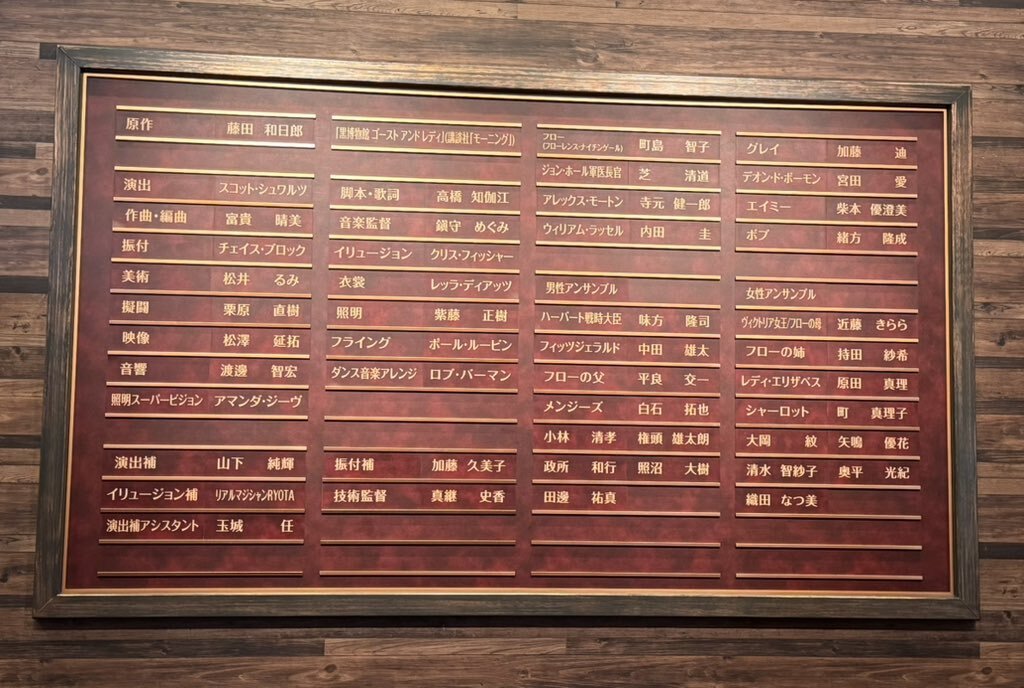 原作 藤田 和日郎
演出 スコット・シュワルツ
作曲・編曲 富貴 晴美
振付 チェイス・ブロック
美術 松井 るみ
擬闘 栗原 直樹
映像 松澤 延拓
音響 渡邊 智宏
照明スーパービジョン アマンダ・ジーヴ
演出補 山下 純輝
イリュージョン補 リアルマジシャンRYOTA
演出補アシスタント 玉城 任
「黒博物館 ゴースト アンド レディ」(講談社「モーニング」)
脚本・歌詞 高橋 知伽江
音楽監督 鎭守 めぐみ
イリュージョン クリス・フィッシャー
衣裳 レッラ・ディアッツ
照明 紫藤 正樹
フライング ポール・ルービン
ダンス音楽アレンジ ロブ・バーマン
振付補 加藤 久美子
技術監督 真継 史香
フロー
(フローレンス・ナイチンゲール) 町島 智子
ジョン・ホール軍医長官 芝 清道
アレックス・モートン 寺元 健一郎
ウィリアム・ラッセル 内田 圭
男性アンサンブル
ハーバート戦時大臣 味方 隆司
フィッツジェラルド 中田 雄太
フローの父 平良 交一
メンジーズ 白石 拓也
小林 清孝 権頭 雄太朗
政所 和行 照沼 大樹
田邊 祐真
グレイ 加藤 迪
デオン・ド・ボーモン 宮田 愛
エイミー 柴本 優澄美
ボブ 緒方 隆成
女性アンサンブル
ヴィクトリア女王/フローの母 近藤 きらら
フローの姉 持田 紗希
レディ・エリザベス 原田 真理
シャーロット 町 真理子
大岡 紋 矢嶋 優花
清水 智紗子 奥平 光紀
織田 なつ美